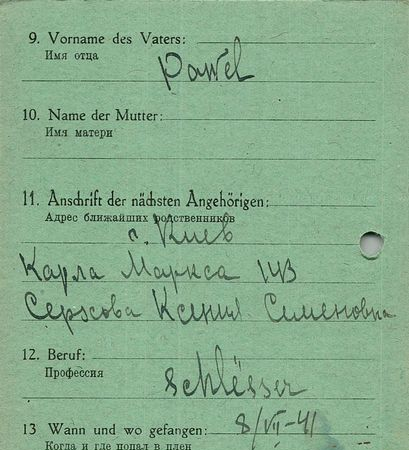 9. Vorname des Vaters:
Имя отца
Pawel
10. Name der Mutter:
Имя матери
11. Anschrift der nächsten Angehörigen:
Адрес ближайших родственников
г. Киев
Карла Маркса 143
Ксения Сименовна
12. Beruf:
Профессия
Schlësser
13 Wann und wo gefangen: 8/VII-41
Когда и где попал в плен